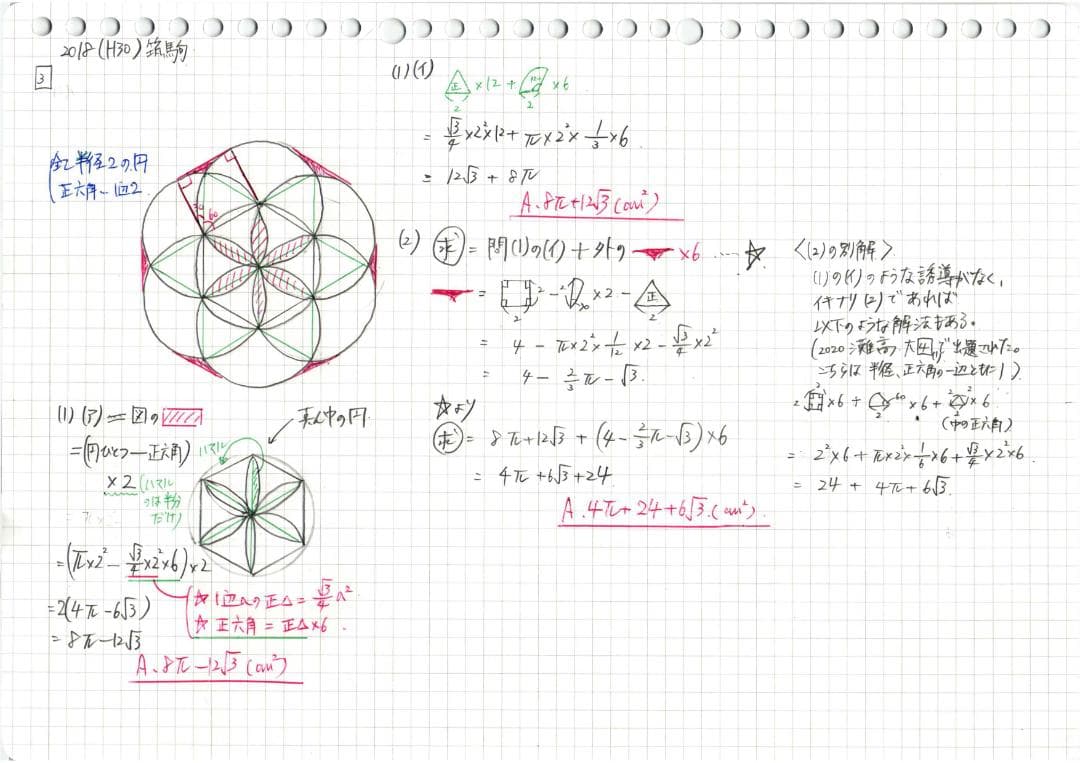 2018(H30)筑駒
3
全て半径2の円
正六角一辺2
30
60
(1)(ア)=図の
=(円ひとつ-正六角)
×2
(ハマル
のは半分
だけ)
真ん中の円
ハマル
=(π×2²-√3/4×2²×6)×2
=2(4π-6√3)
=8π-12√3
A.8π-12√3(cm²)
☆1辺aの正△=√3/4a²
☆正六角=正△×6.
(1)(イ)
正×12+120×6
2 2
=√3/4×2²×12+π×2²×1/3×6
=12√3+8π
A.8π+12√3(cm²)
(2) 求=問(1)の(イ)+外の×6…☆
= 2 - 2 30×2-正
2
=4-π×2²×1/12×2-√3/4×2²
=4-2/3π-√3.
☆より
求=8π+12√3+(4-2/3π-√3)×6
=4π+6√3+24
A.4π+24+6√3.(cm²)
<(2)の別解>
(1)の(イ)のような誘導がなく、
イキナリ(2)であれば
以下のような解法もある。
(2020灘高大問で出題された。
こちらは半径、正六角の一辺ともに1)
=2×6+2 60×6+2×6
(中の正六角)
=2²×6+π×2²×1/6×6+√3/4×2²×6
=24+4π+6√3.